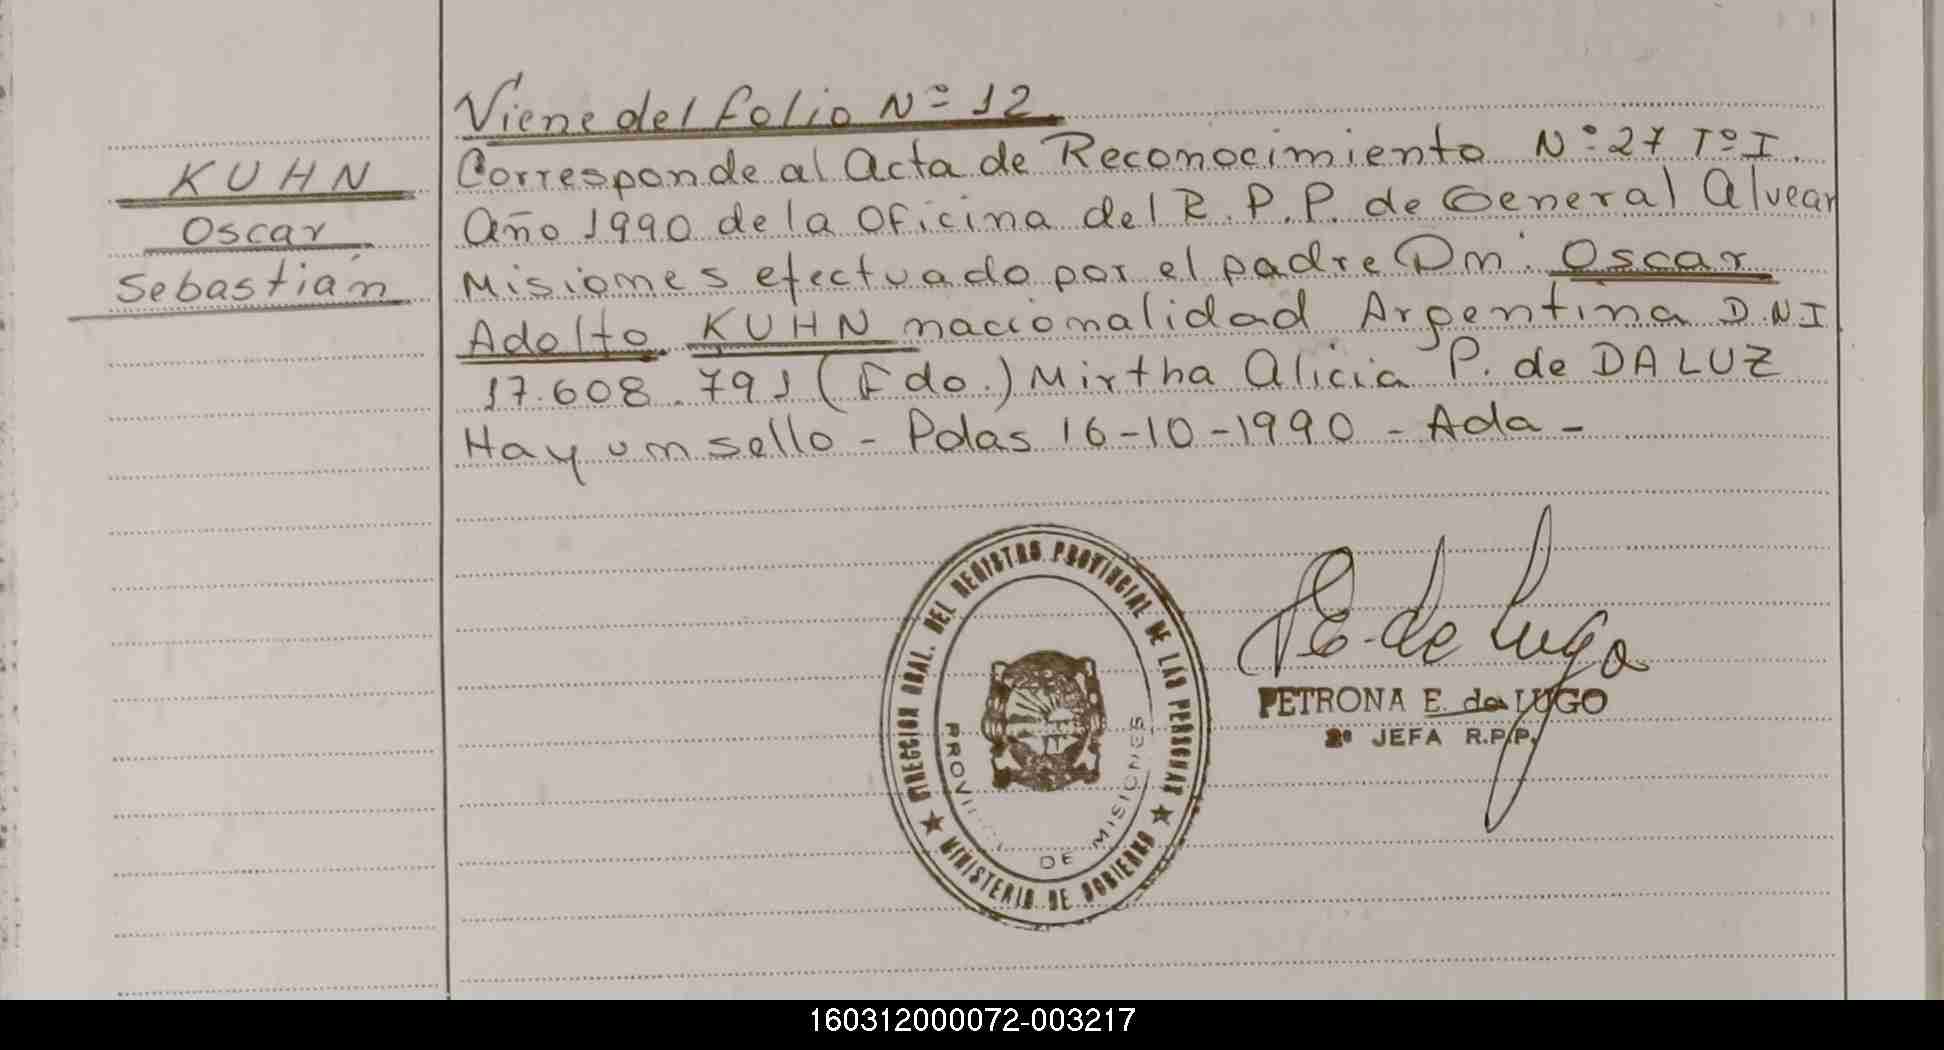 Viene del folio Nº 12
KUHN
Oscar
Sebastián
Corresponde al Acta de Reconocimiento Nº 27 Tº I.
Año 1990 de la Oficina del R.P.P. de General Alvear
Misiones efectuado por el padre Dn. Oscar
Adolfo KUHN nacionalidad Argentina D.N.I
17.608.791 (Fdo.) Mirtha Alicia P. de DA LUZ
Hay un sello - Pdas 16-10-1990 - Ada -
DIRECCION GRAL. DEL REGISTRO PROVINCIAL DE LAS PERSONAS
★ MINISTERIO DE GOBIERNO ★
DE MISIONES
P.E. de Lugo
PETRONA E. de LUGO
2º JEFA R.P.P.
160312000072-003217